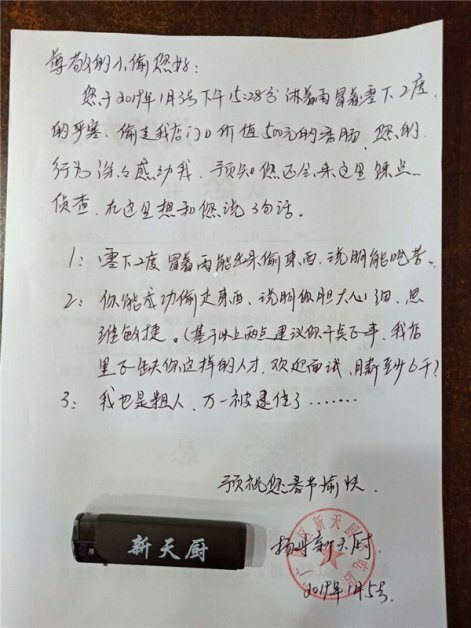 尊敬的小偷您好：
您于2019年1月3号下午15:28分淋着雨冒着零下2度
的严寒、偷走我店门口价值500元的香肠、您的
行为深深感动我、预知您还会来这里踩点
侦查、在这里想和您说3句话。
1：零下2度冒着雨能出来偷东西、说明能吃苦。
2：你能成功偷走东西、说明你胆大心细、思
维敏捷。（基于以上两点建议你干点正事、我店
里正缺你这样的人才、欢迎面试、月薪至少6千）
3：我也是粗人、万一被逮住了……
预祝您春节愉快.
新天厨
扬州新天厨.
2019年1月5号